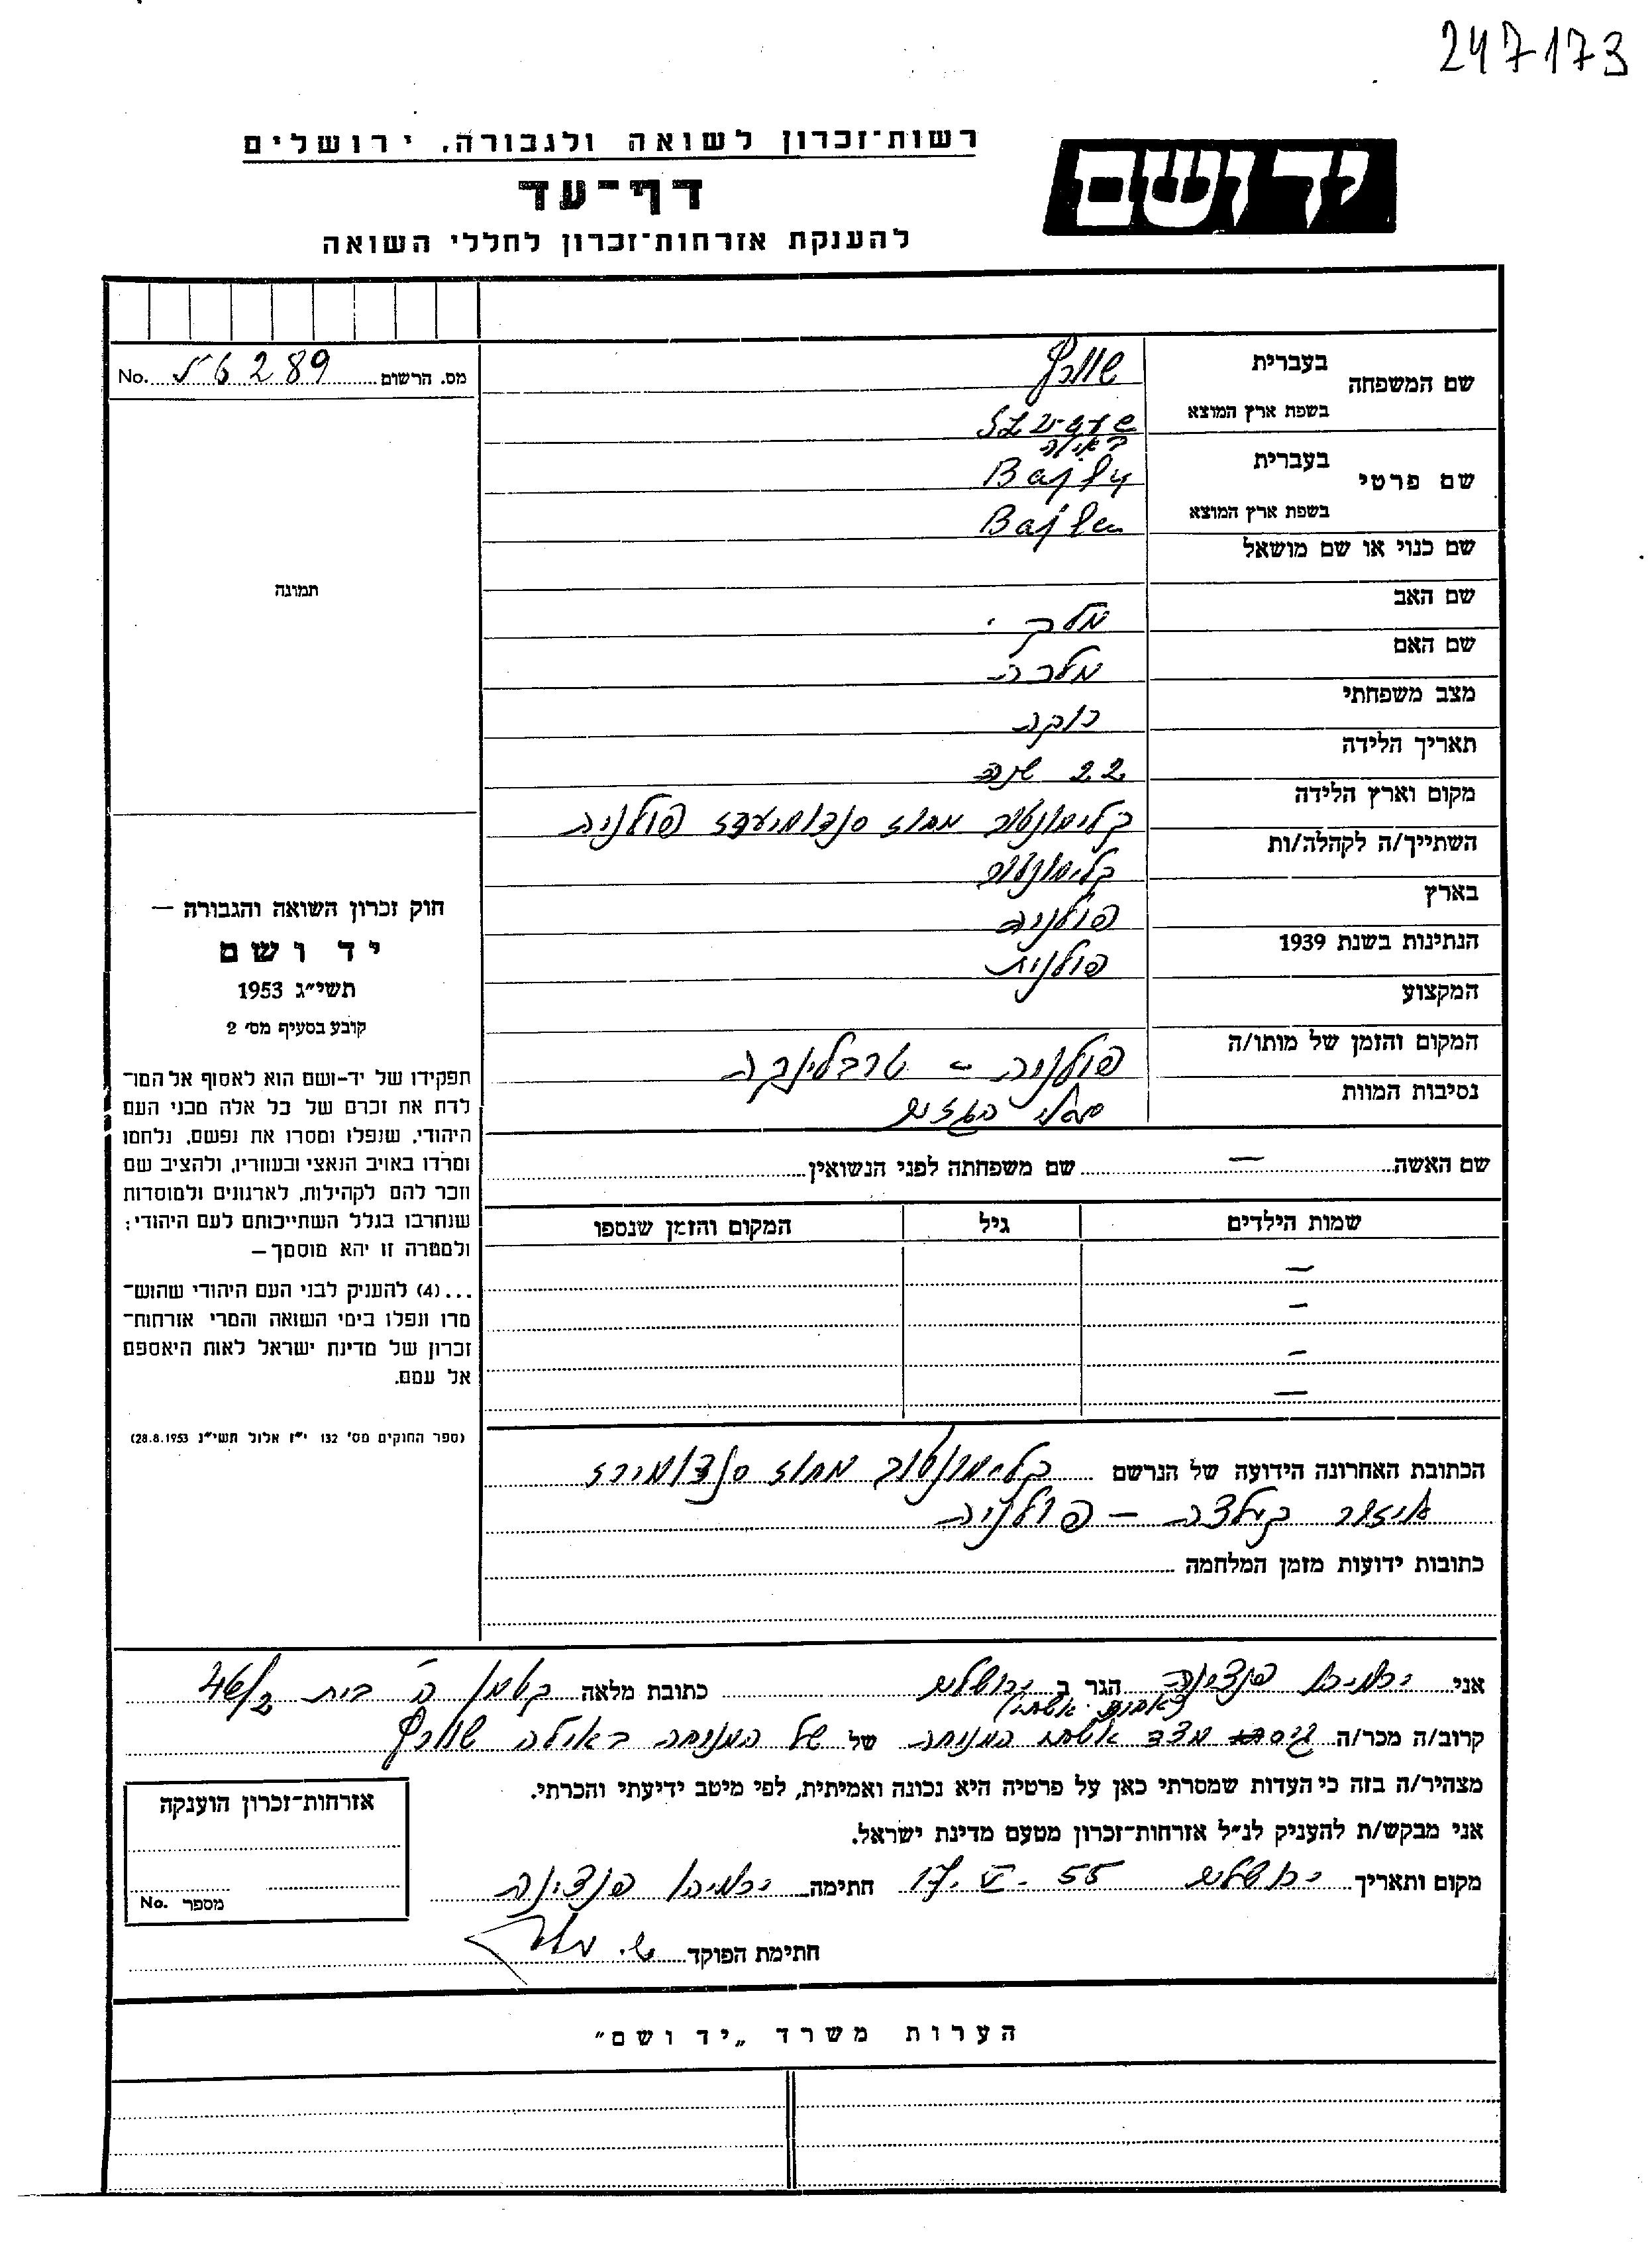 247173
יד ושם
רשות־זכרון לשואה ולגבורה, ירושלים
דף־עד
להענקת אזרחות־זכרון לחללי השואה
מס. הרשום 56289 No.
שם המשפחה
בעברית שוורץ
בשפת ארץ המוצא
שם פרטי
באילה
בעברית Bajla
בשפת ארץ המוצא Bajla
שם כנוי או שם מושאל
שם האב
שם האם מלכה
מצב משפחתי רווקה
תאריך הלידה 22 שנה
מקום וארץ הלידה קלימונטוב מחוז פולניה
השתייך/ה לקהלה/ות קלימונטוב
בארץ פולניה
הנתינות בשנת 1939 פולנית
המקצוע
המקום והזמן של מותו/ה פולניה – טרבלינקה
נסיבות המוות
תמונה
חוק זכרון השואה והגבורה —
יד ושם
תשי״ג 1953
קובע בסעיף מס׳ 2
תפקידו של יד-ושם הוא לאסוף אל המו־
לדת את זכרם של כל אלה מבני העם
היהודי, שנפלו ומסרו את נפשם, נלחמו
ומרדו באויב הנאצי ובעוזריו, ולהציב שם
וזכר להם לקהילות, לארגונים ולמוסדות
שנחרבו בגלל השתייכותם לעם היהודי;
ולמטרה זו יהא מוסמך—
...(4) להעניק לבני העם היהודי שהוש־
מדו ונפלו בימי השואה והמרי אזרחות־
זכרון של מדינת ישראל לאות היאספם
אל עמם.
(ספר החוקים מס׳ 132 י״ז אלול תשי״ג 28.8.1953)
שם האשה — שם משפחתה לפני הנשואין
שמות הילדים גיל המקום והזמן שנספו
—
—
—
—
הכתובת האחרונה הידועה של הנרשם קלימונטוב מחוז סנדומירז
איזור קילצה – פולניה
כתובות ידועות מזמן המלחמה
אני ירמיהו הגר ב ירושלים כתובת מלאה קטמון ה׳ בית 46/2
קרוב/ה מכר/ה מצד המנוחה של של המנוחה באילה שוורץ
מצהיר/ה בזה כי העדות שמסרתי כאן על פרטיה היא נכונה ואמיתית, לפי מיטב ידיעתי והכרתי.
אני מבקש/ת להעניק לנ״ל אזרחות־זכרון מטעם מדינת ישראל.
מקום ותאריך ירושלים 17. V. 55 חתימה ירמיהו
חתימת הפוקד
אזרחות־זכרון הוענקה
מספר No.
הערות משרד „יד ושם״